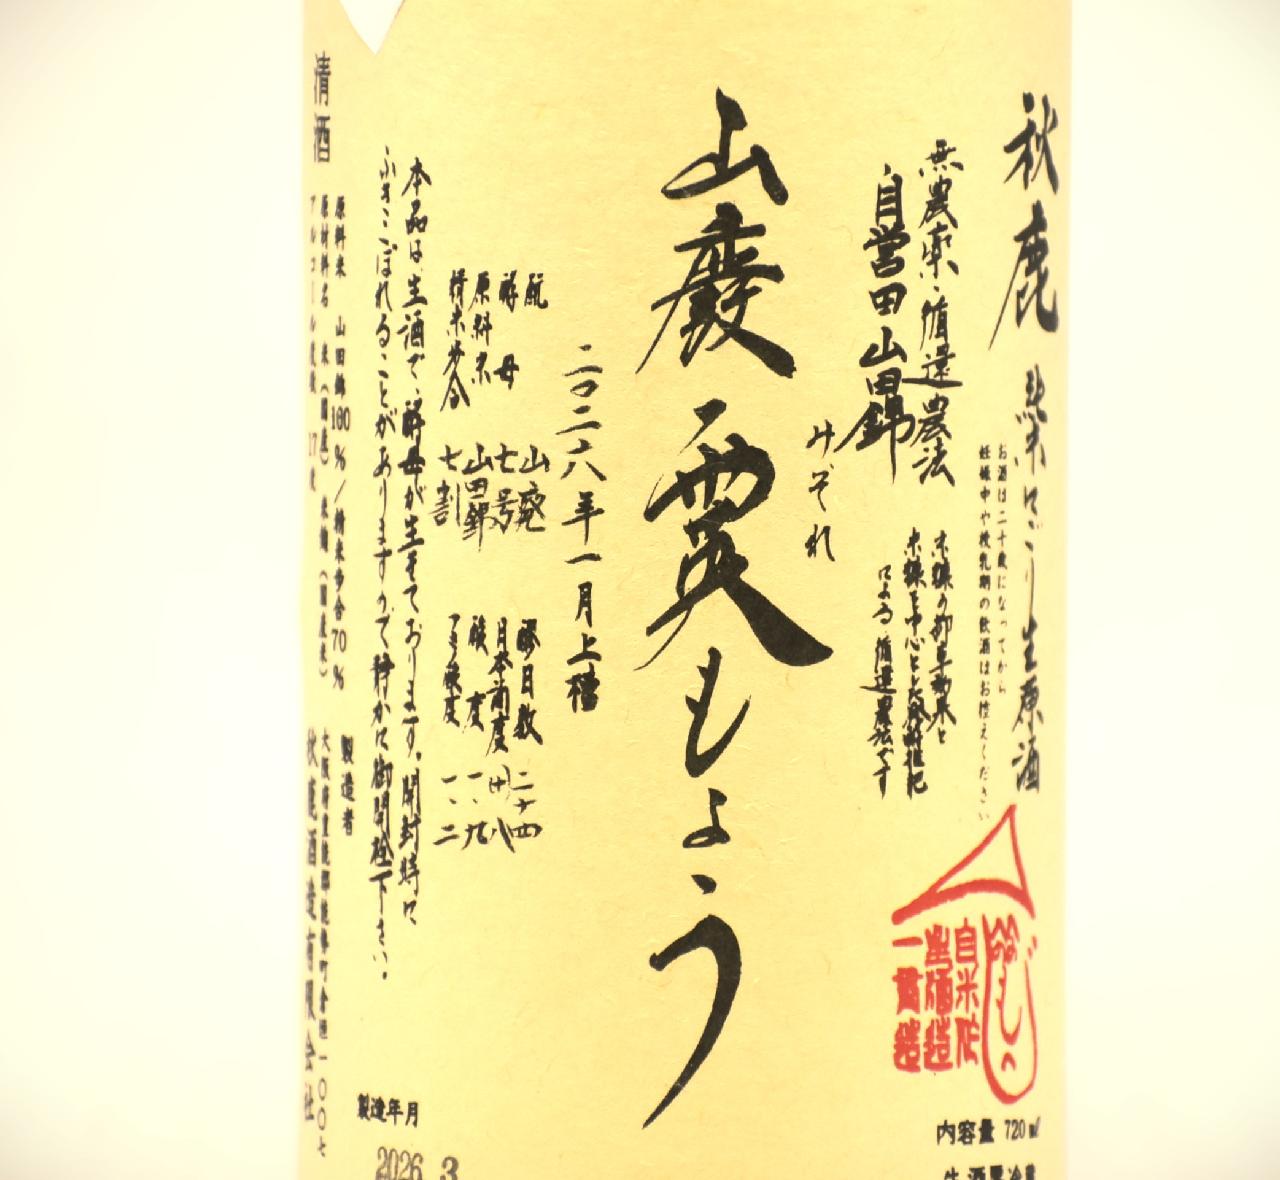 秋鹿 純米にごり生原酒
お酒は二十歳になってから
妊娠中や授乳期の飲酒はお控えください
無農薬・循環農法
自営田山田錦
米糠を中心とした発酵堆肥
による循環農法です
みぞれ
山廃霙もよう
二〇二六年一月上槽
酛 山廃
酵母 七号
原料米 山田錦
精米歩合 七割
醪日数 二十四
日本酒度 +八
酸度 一・九
アミノ酸度 一・二
本品は生酒で、酵母が生きております。開封時に
ふきこぼれることがありますので静かに御開栓下さい。
清酒
原料米 山田錦100%/精米歩合70%
原材料名 米(国産)米麹(国産米)
アルコール度数 17度
製造者
大阪府豊能郡能勢町倉垣一〇〇七
秋鹿酒造有限会社
製造年月
2026 3
自米作
一貫造
内容量 720ml